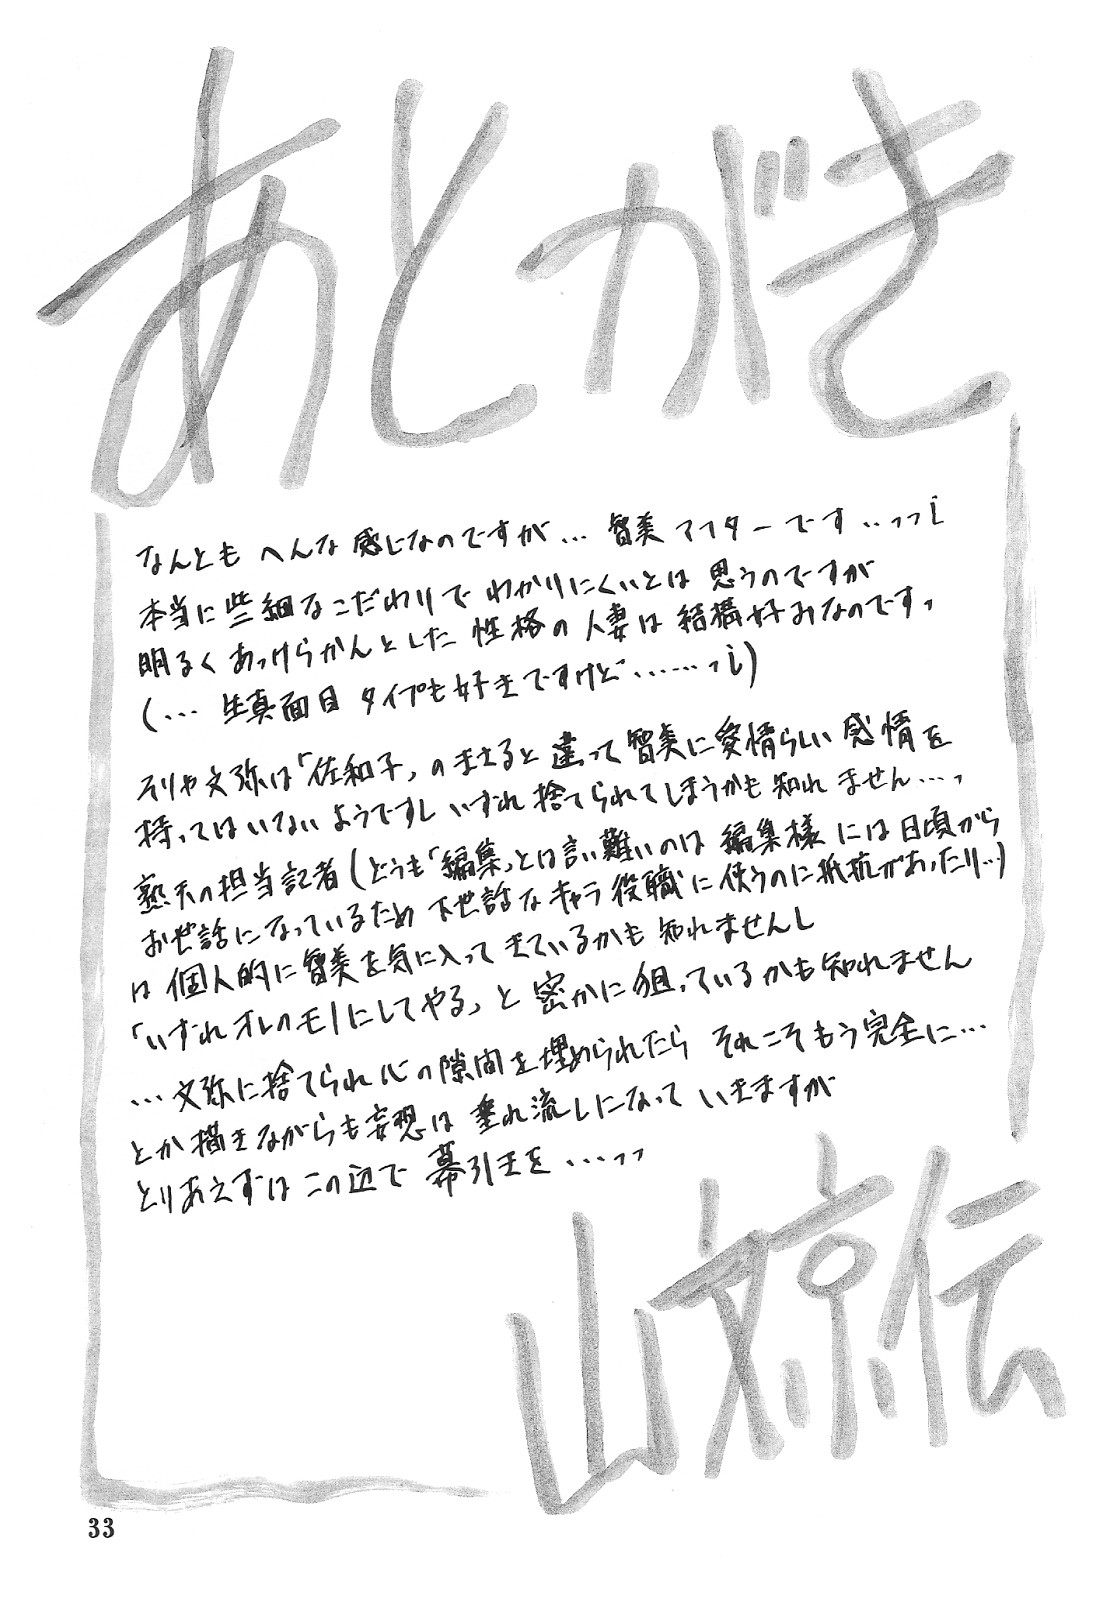 あとがき
なんとも へんな 感じなのですが… 智美 アフターです…っっ!
本当に些細なこだわりで わかりにくいとは 思うのですが
明るく あっけらかんとした 性格の 人妻は 結構好みなのです、
(… 生真面目 タイプも好きですけど……っ!)
そりゃ文弥は「佐和子」のまさると 違って 智美に愛情らしい 感情を
持ってはいない ようですし いずれ 捨てられてしまうかも 知れ ません…っ
熟天の担当記者(どうも「編集」とは言い難いのは 編集様 には日頃から
お世話になっているため 下世話な キャラ 役職に 使うのに抵抗があったり…)
は 個人的に智美を気に入って きているかも 知れませんし
「いずれ オレのモノにしてやる」と 密かに狙っているかも知れません
… 文弥に捨てられ 心の 隙間を埋められたら それこそもう完全に…
とか描きながらも妄想は 垂れ流しになって いきますが
とりあえずは この辺で 幕引きを …っっ
山文京伝
33